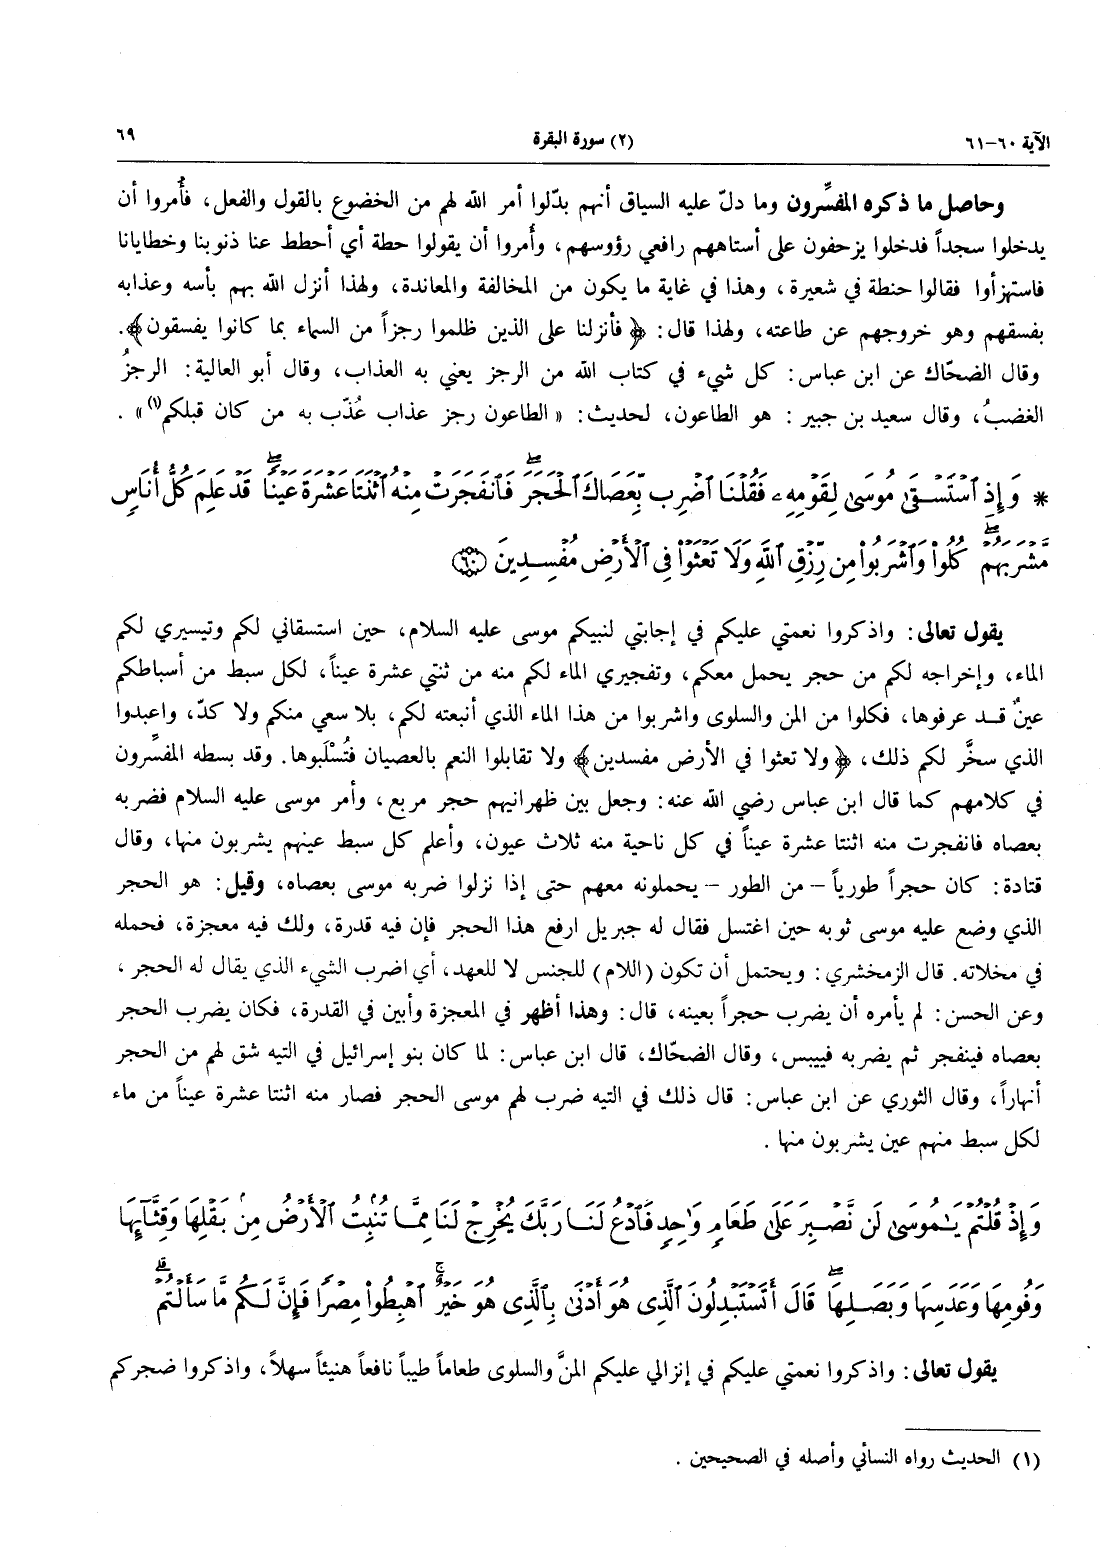 الآية ٦٠-٦١
(٢) سورة البقرة
٦٩
وحاصل ما ذكره المفسِّرون وما دلّ عليه السياق أنهم بدّلوا أمر الله لهم من الخضوع بالقول والفعل، فأُمروا أن
يدخلوا سجداً فدخلوا يزحفون على أستاههم رافعي رؤوسهم، وأُمروا أن يقولوا حطة أي أحطط عنا ذنوبنا وخطايانا
فاستهزأوا فقالوا حنطة في شعيرة، وهذا في غاية ما يكون من المخالفة والمعاندة، ولهذا أنزل الله بهم بأسه وعذابه
بفسقهم وهو خروجهم عن طاعته، ولهذا قال: ﴿فأنزلنا على الذين ظلموا رجزاً من السماء بما كانوا يفسقون﴾.
وقال الضحّاك عن ابن عباس: كل شيء في كتاب الله من الرجز يعني به العذاب، وقال أبو العالية: الرجزُ
الغضبُ، وقال سعيد بن جبير: هو الطاعون، لحديث: «الطاعون رجز عذاب عُذّب به من كان قبلكم(١)».
* وَإِذِ ٱسْتَسْقَىٰ مُوسَىٰ لِقَوْمِهِۦ فَقُلْنَا ٱضْرِب بِّعَصَاكَ ٱلْحَجَرَۖ فَٱنفَجَرَتْ مِنْهُ ٱثْنَتَا عَشْرَةَ عَيْنًاۖ قَدْ عَلِمَ كُلُّ أُنَاسٍ
مَّشْرَبَهُمْۖ كُلُوا۟ وَٱشْرَبُوا۟ مِن رِّزْقِ ٱللَّهِ وَلَا تَعْثَوْا۟ فِى ٱلْأَرْضِ مُفْسِدِينَ ﴿٦٠﴾
يقول تعالى: واذكروا نعمتي عليكم في إجابتي لنبيكم موسى عليه السلام، حين استسقاني لكم وتيسيري لكم
الماء، وإخراجه لكم من حجر يحمل معكم، وتفجيري الماء لكم منه من ثنتي عشرة عيناً، لكل سبط من أسباطكم
عينٌ قد عرفوها، فكلوا من المن والسلوى واشربوا من هذا الماء الذي أنبعته لكم، بلا سعي منكم ولا كدّ، واعبدوا
الذي سخَّر لكم ذلك، ﴿ولا تعثوا في الأرض مفسدين﴾ ولا تقابلوا النعم بالعصيان فتُسْلَبوها. وقد بسطه المفسِّرون
في كلامهم كما قال ابن عباس رضي الله عنه: وجعل بين ظهرانيهم حجر مربع، وأمر موسى عليه السلام فضربه
بعصاه فانفجرت منه اثنتا عشرة عيناً في كل ناحية منه ثلاث عيون، وأعلم كل سبط عينهم يشربون منها، وقال
قتادة: كان حجراً طورياً – من الطور – يحملونه معهم حتى إذا نزلوا ضربه موسى بعصاه، وقيل: هو الحجر
الذي وضع عليه موسى ثوبه حين اغتسل فقال له جبريل ارفع هذا الحجر فإن فيه قدرة، ولك فيه معجزة، فحمله
في مخلاته. قال الزمخشري: ويحتمل أن تكون (اللام) للجنس لا للعهد، أي اضرب الشيء الذي يقال له الحجر،
وعن الحسن: لم يأمره أن يضرب حجراً بعينه، قال: وهذا أظهر في المعجزة وأبين في القدرة، فكان يضرب الحجر
بعصاه فينفجر ثم يضربه فييبس، وقال الضحّاك، قال ابن عباس: لما كان بنو إسرائيل في التيه شق لهم من الحجر
أنهاراً، وقال الثوري عن ابن عباس: قال ذلك في التيه ضرب لهم موسى الحجر فصار منه اثنتا عشرة عيناً من ماء
لكل سبط منهم عين يشربون منها.
وَإِذْ قُلْتُمْ يَٰمُوسَىٰ لَن نَّصْبِرَ عَلَىٰ طَعَامٍ وَٰحِدٍ فَٱدْعُ لَنَا رَبَّكَ يُخْرِجْ لَنَا مِمَّا تُنۢبِتُ ٱلْأَرْضُ مِنۢ بَقْلِهَا وَقِثَّآئِهَا
وَفُومِهَا وَعَدَسِهَا وَبَصَلِهَاۖ قَالَ أَتَسْتَبْدِلُونَ ٱلَّذِى هُوَ أَدْنَىٰ بِٱلَّذِى هُوَ خَيْرٌۚ ٱهْبِطُوا۟ مِصْرًا فَإِنَّ لَكُم مَّا سَأَلْتُمْۗ
يقول تعالى: واذكروا نعمتي عليكم في إنزالي عليكم المنَّ والسلوى طعاماً طيباً نافعاً هنيئاً سهلاً، واذكروا ضجركم
(١) الحديث رواه النسائي وأصله في الصحيحين.